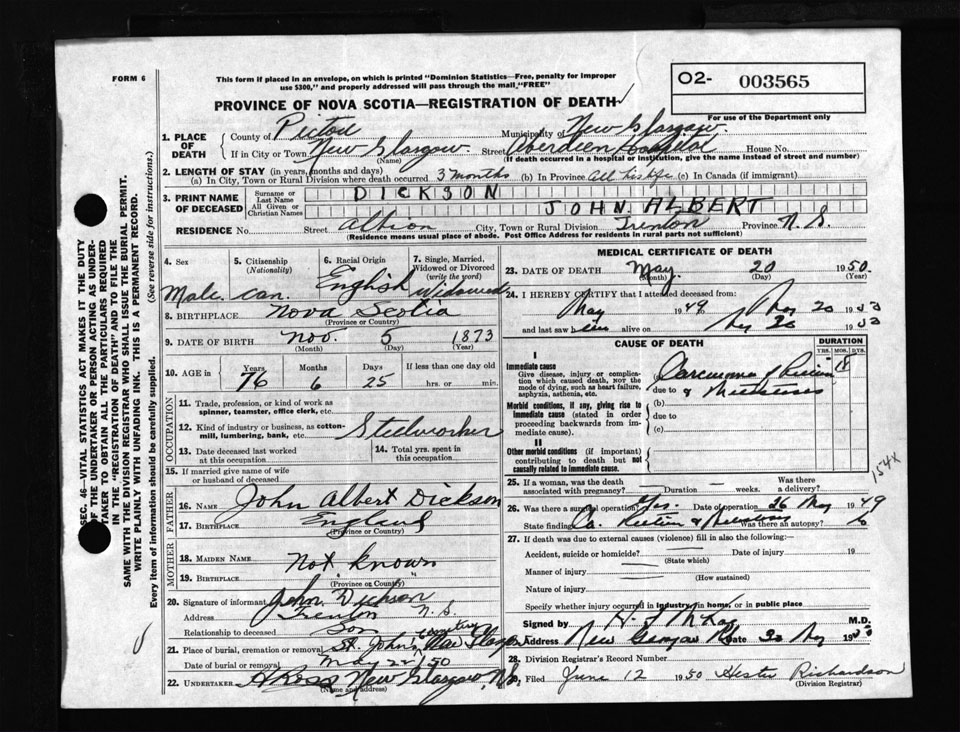 FORM 6
This form if placed in an envelope, on which is printed "Dominion Statistics—Free, penalty for improper
use $300," and properly addressed will pass through the mail "FREE"
O2- 003565
For use of the Department only
PROVINCE OF NOVA SCOTIA—REGISTRATION OF DEATH
1. PLACE OF DEATH
County of Pictou Municipality of New Glasgow.
If in City or Town New Glasgow. Street Aberdeen Hospital House No.
(Name) (If death occurred in a hospital or institution, give the name instead of street and number)
2. LENGTH OF STAY (in years, months and days)
(a) In City, Town or Rural Division where death occurred 3 months (b) In Province All his life (c) In Canada (if immigrant)
3. PRINT NAME OF DECEASED
Surname or Last Name DICKSON
All Given or Christian Names JOHN ALBERT
RESIDENCE No. Street Albion City, Town or Rural Division Trenton Province N.S.
(Residence means usual place of abode. Post Office Address for residents in rural parts not sufficient)
4. Sex Male.
5. Citizenship (Nationality) Can.
6. Racial Origin English
7. Single, Married, Widowed or Divorced (write the word) Widowed
8. BIRTHPLACE Nova Scotia
(Province or Country)
9. DATE OF BIRTH Nov. 5 1873
(Month) (Day) (Year)
10. AGE in Years Months Days If less than one day old
76 6 25 hrs. or min.
OCCUPATION
11. Trade, profession, or kind of work as
spinner, teamster, office clerk, etc.
12. Kind of industry or business, as cotton-
mill, lumbering, bank, etc. Steelworker
13. Date deceased last worked
at this occupation
14. Total yrs. spent in
this occupation
15. If married give name of wife
or husband of deceased
FATHER
16. NAME John Albert Dickson
17. BIRTHPLACE England
(Province or Country)
MOTHER
18. MAIDEN NAME Not known
19. BIRTHPLACE "
(Province or Country)
20. Signature of informant John Dickson
Address Trenton N.S.
Relationship to deceased Son
21. Place of burial, cremation or removal St. John's cemetery New Glasgow
Date of burial or removal May 22/50
22. UNDERTAKER A Ross New Glasgow, N.S.
(Name and address)
MEDICAL CERTIFICATE OF DEATH
23. DATE OF DEATH May. 20 1950.
(Month) (Day) (Year)
24. I HEREBY CERTIFY that I attended deceased from:
May 1949 to May 20 19
and last saw him alive on May 20 19
CAUSE OF DEATH
DURATION
YRS. MOS. DYS.
I
Immediate cause
Give disease, injury or complica-
tion which caused death, not the
mode of dying, such as heart failure,
asphyxia, asthenia, etc.
(a) Carcinoma Rectum 18
due to & Metastases
Morbid conditions, if any, giving rise to
immediate cause (stated in order
proceeding backwards from im-
mediate cause).
(b)
due to
(c)
II
Other morbid conditions (if important)
contributing to death but not
causally related to immediate cause.
154X
25. If a woman, was the death
associated with pregnancy? — Duration — Was there
a delivery?
26. Was there a surgical operation? Yes. Date of operation 26 May 1949
State finding Ca. Rectum & Was there an autopsy? No
27. If death was due to external causes (violence) fill in also the following:
Accident, suicide or homicide? Date of injury 19
(State which)
Manner of injury
(How sustained)
Nature of injury
Specify whether injury occurred in industry, in home, or in public place
Signed by H. McKay M.D.
Address New Glasgow NS Date 22 May 1950
28. Division Registrar's Record Number
29. Filed June 12 1950 Hester Richardson
(Division Registrar)
SEC. 46—VITAL STATISTICS ACT MAKES IT THE DUTY
OF THE UNDERTAKER OR PERSON ACTING AS UNDER-
TAKER TO OBTAIN ALL THE PARTICULARS REQUIRED
IN THE "REGISTRATION OF DEATH" AND TO FILE THE
SAME WITH THE DIVISION REGISTRAR WHO SHALL ISSUE THE BURIAL PERMIT.
WRITE PLAINLY WITH UNFADING INK. THIS IS A PERMANENT RECORD.
Every item of information should be carefully supplied. (See reverse side for instructions.)